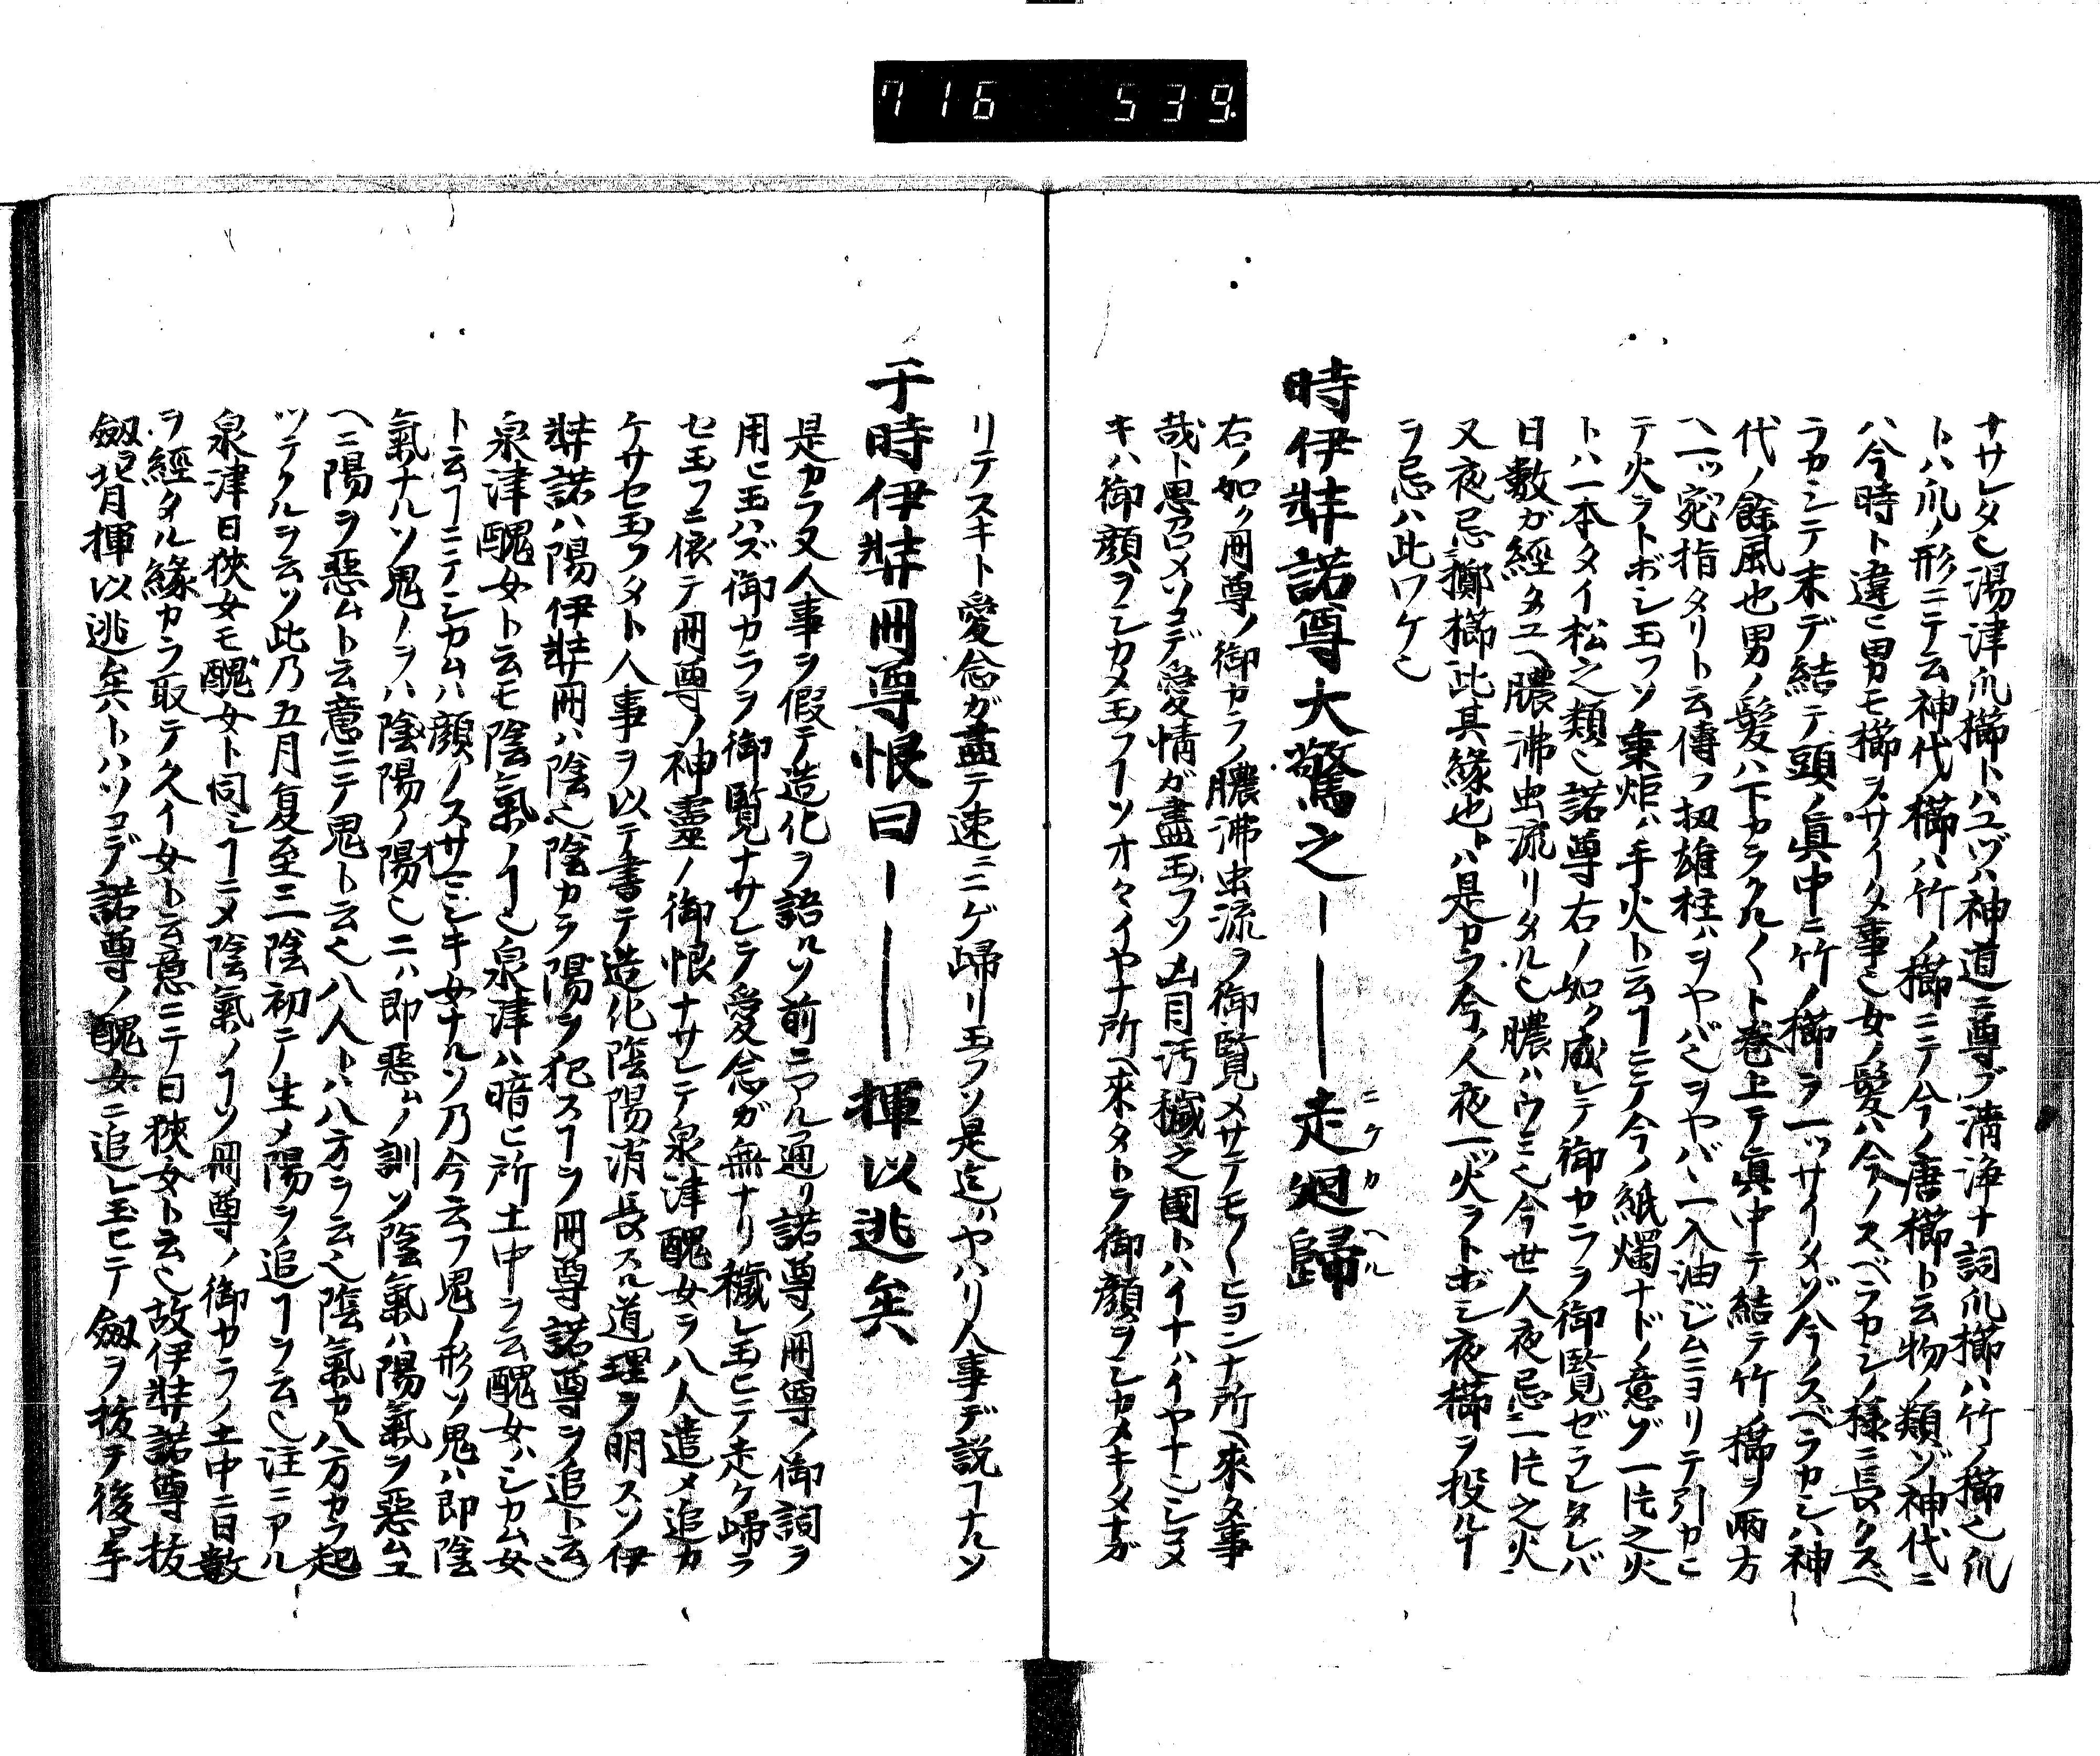 716 539
ナサレタ也湯津爪櫛トハユヅハ神道ニ尊ブ清浄ナ詞爪櫛ハ竹ノ櫛也爪
トハ爪ノ形ニテ云神代ノ櫛ハ竹ノ櫛ニテ今ノ唐櫛ト云物ノ類ゾ神代ニ
ハ今時ト違ヒ男モ櫛ヲサイタ事也女ノ髪ハ今ノスベラカシノ様ニ長クスベ
ラカシテ末デ結テ頭ノ眞中ニ竹ノ櫛ヲ一ツサイタゾ今ノスベラカシハ神
代ノ餘風也男ノ髪ハ下カラクル〱ト巻上テ眞中テ結テ竹ノ櫛ヲ兩方
ヘ一ツ宛指タリト云傳フ扨雄柱ハヲヤバ也ヲヤバヽ一入油ジムニヨリテ引カヒ
テ火ヲトボシ玉フソ秉炬ハ手火ト云ヿニテ今ノ紙燭ナドノ意ゾ一片之火
トハ一本タイ松之類也諾尊右ノ如ク成レテ御カラヲ御覧ゼラレタレバ
日數ガ經タユヘ膿沸虫流リタル也膿ハウミ也今世人夜忌一片之火
又夜忌擲櫛此其縁也トハ是カラ今ノ人夜一ツ火ヲトボシ夜櫛ヲ投ルヿ
ヲ忌ハ此ワケ也
時伊弉諾尊大驚之――走廻歸
ニケカヘル
右ノ如ク冊尊ノ御カラノ膿沸虫流ヲ御覧メサテモ〱ヒヨンナ所ヘ來タ事
哉ト思召メソコデ愛情ガ盡玉フソ凶目汚穢之國トハイナハイヤナ也シコメ
キハ御顔ヲシカメ玉フヿソオヽイヤナ所ヘ來タトテ御顔ヲシカメキタナガ
リテスキト愛念ガ盡テ速ニニゲ歸リ玉フソ是迄ハヤハリ人事デ説ヿナルソ
于時伊弉冊尊恨曰――揮以逃矣
是カラ又人事ヲ假テ造化ヲ語ルソ前ニアル通リ諾尊ノ冊尊ノ御詞ヲ
用ヒ玉ハズ御カラヲ御覧ナサレテ愛念ガ無ナリ穢レ玉ヒテ走ケ歸ラ
セ玉フニ依テ冊尊ノ神靈ノ御恨ナサレテ泉津醜女ヲ八人遣メ追カ
ケサセ玉フタト人事ヲ以テ書テ造化陰陽消長スル道理ヲ明スソ伊
弉諾ハ陽伊弉冊ハ陰也陰カラ陽ヲ犯スヿヲ冊尊諾尊ヲ追ト云也
泉津醜女ト云モ陰氣ノヿ也泉津ハ暗ヒ所土中ヲ云醜女ハシカム女
ト云ヿニテシカムハ顔ノスサミシキ女ナルソ乃今云フ鬼ノ形ソ鬼ハ即陰
氣ナルソ鬼ノヲハ陰陽ノ陽也ニハ即惡ムノ訓ソ陰氣ハ陽氣ヲ惡ムユ
ヘニ陽ヲ惡ムト云意ニテ鬼ト云也八人トハ八方ヲ云也陰氣カ八方カラ起
ツテクルヲ云ソ此乃五月夏至三陰初テ生メ陽ヲ追ヿヲ云也注ニアル
泉津日狹女モ醜女ト同シヿニメ陰氣ノヿソ冊尊ノ御カラノ土中ニ日數
ヲ經タル縁カラ取テ久イ女ト云意ニテ日狹女ト云也故伊弉諾尊抜
劔背揮以逃矣トハソコデ諾尊ノ醜女ニ追レ玉ヒテ劔ヲ抜テ後手